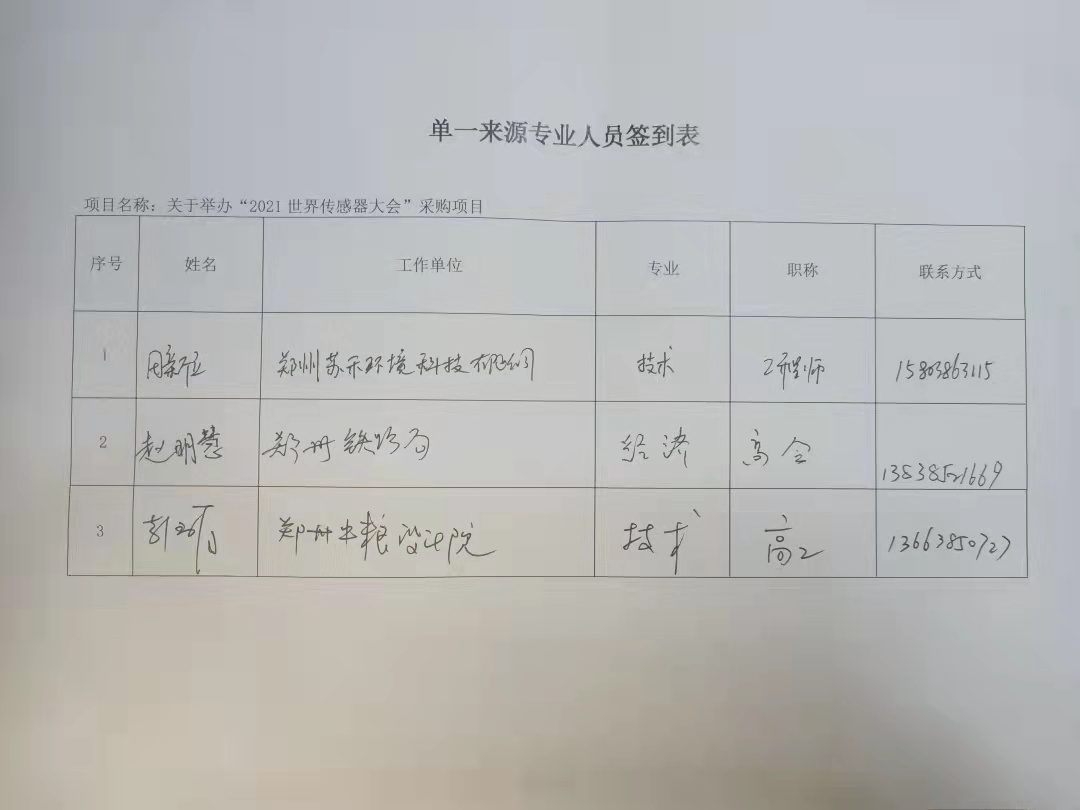 单一来源专业人员签到表
项目名称：关于举办“2021世界传感器大会”采购项目
序号 姓名 工作单位 专业 职称 联系方式
1 郑州苏禾环境科技有限公司 技术 工程师 15803863115
2 赵明慧 郑州铁路局 经济 高会 13838521669
3 郑州中粮设计院 技术 高工 13663850727